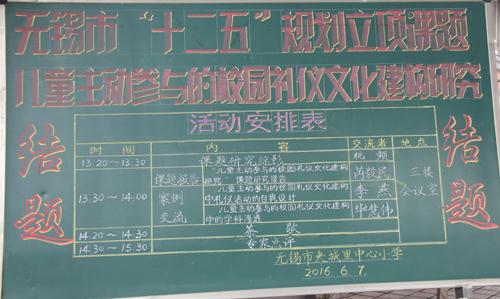 无锡市"十二五"规划立项课题
儿童主动参与的校园礼仪文化建构研究
结题
活动安排表
结题
时间 内容 交流者 地点
13.20～13.30 课题研究综影 视频
13.30～14.00 课题报告 "儿童主动参与的校园礼仪文化建构
研究"课题研究报告 芮敏民
案例 儿童主动参与的校园礼仪文化建构
中礼仪活动的自我设计 李燕
交流 儿童主动参与的校园礼仪文化建构
中的学科渗透 毕慧伟
三楼
会议室
14.20～14.30 茶歇
14.30～15.30 专家点评
无锡市夹城里中心小学
2016.6.7.